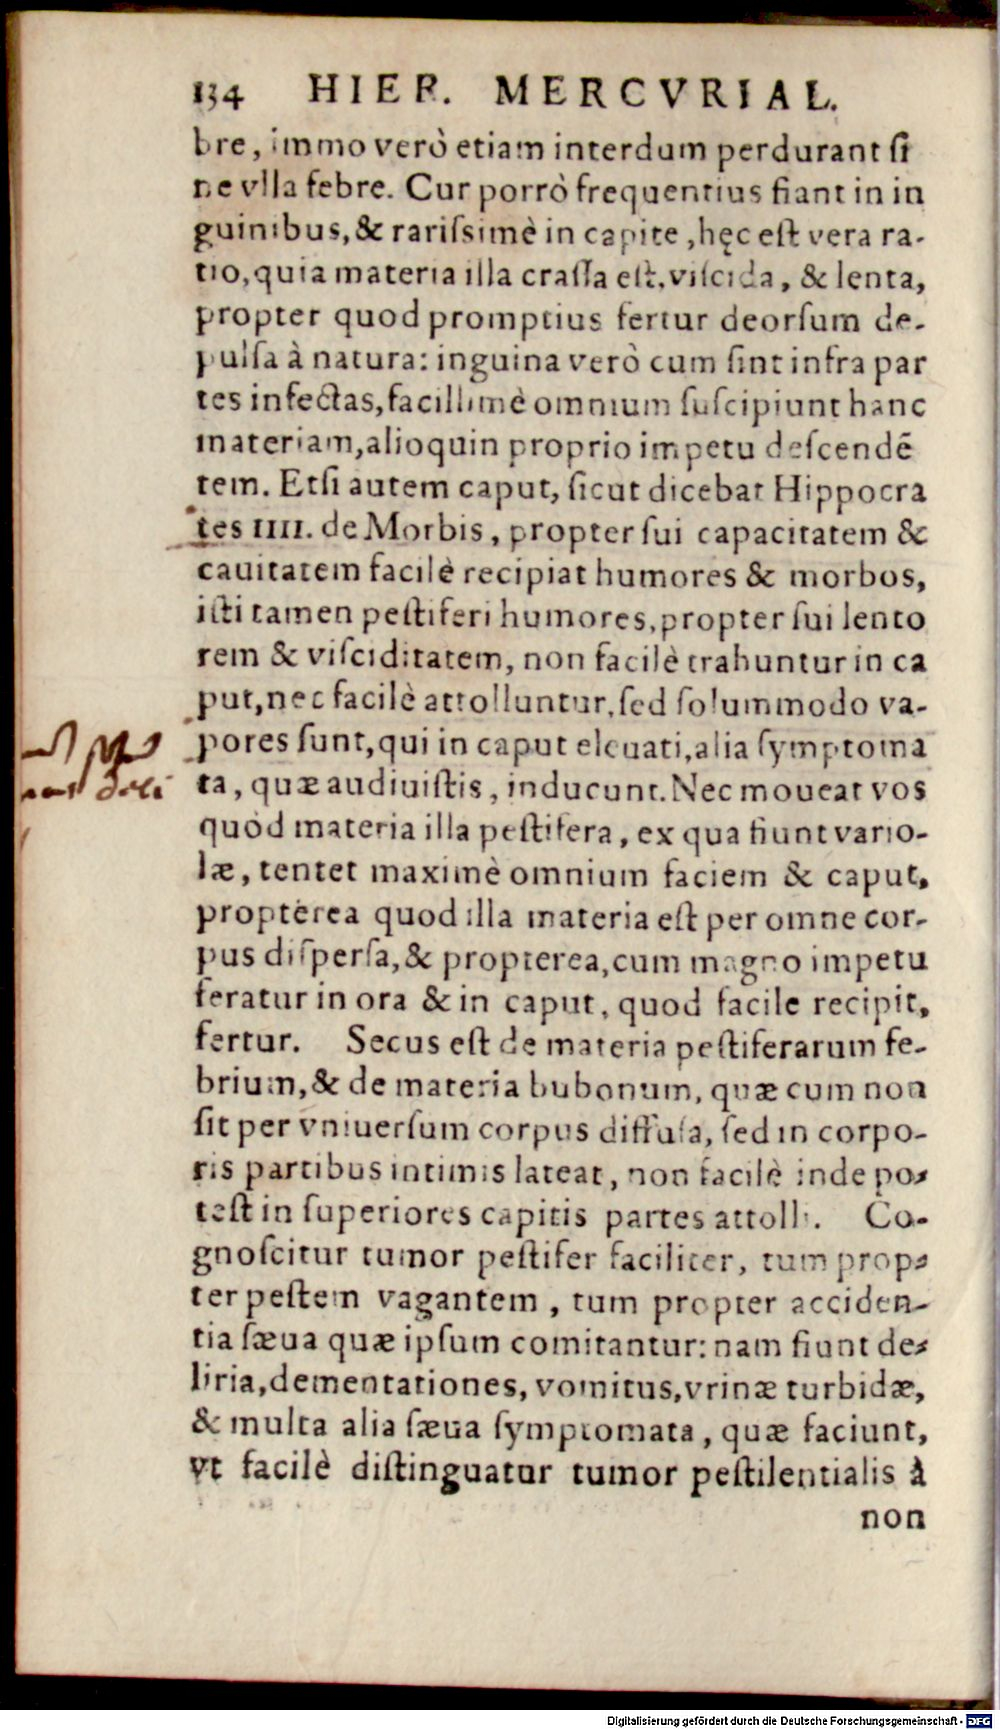 134 HIER. MERCVRIAL.
bre, immo verò etiam interdum perdurant ſi
ne vlla febre. Cur porrò frequentius fiant in in
guinibus, & rariſsimè in capite, hęc eſt vera ra-
tio, quia materia illa craſſa eſt, viſcida, & lenta,
propter quod promptius fertur deorſum de-
pulſa à natura: inguina verò cum ſint infra par
tes infectas, facillimè omnium ſuſcipiunt hanc
materiam, alioquin proprio impetu deſcendē
tem. Etſi autem caput, ſicut dicebat Hippocra
tes IIII. de Morbis, propter ſui capacitatem &
cauitatem facilè recipiat humores & morbos,
iſti tamen peſtiferi humores, propter ſui lento
rem & viſciditatem, non facilè trahuntur in ca
put, nec facilè attolluntur, ſed ſolummodo va-
pores ſunt, qui in caput eleuati, alia ſymptoma
ta, quæ audiuiſtis, inducunt. Nec moueat vos
quòd materia illa peſtifera, ex qua fiunt vario-
læ, tentet maximè omnium faciem & caput,
propterea quod illa materia eſt per omne cor-
pus diſperſa, & propterea, cum magno impetu
feratur in ora & in caput, quod facile recipit,
fertur. Secus eſt de materia peſtiferarum fe-
brium, & de materia bubonum, quæ cum non
ſit per vniuerſum corpus diffuſa, ſed in corpo-
ris partibus intimis lateat, non facilè inde po-
teſt in ſuperiores capitis partes attolli. Co-
gnoſcitur tumor peſtifer faciliter, tum prop-
ter peſtem vagantem, tum propter acciden-
tia ſæua quæ ipſum comitantur: nam fiunt de-
liria, dementationes, vomitus, vrinæ turbidæ,
& multa alia ſæua ſymptomata, quæ faciunt,
vt facilè diſtinguatur tumor peſtilentialis à
non
Digitalisierung gefördert durch die Deutsche Forschungsgemeinschaft - DFG